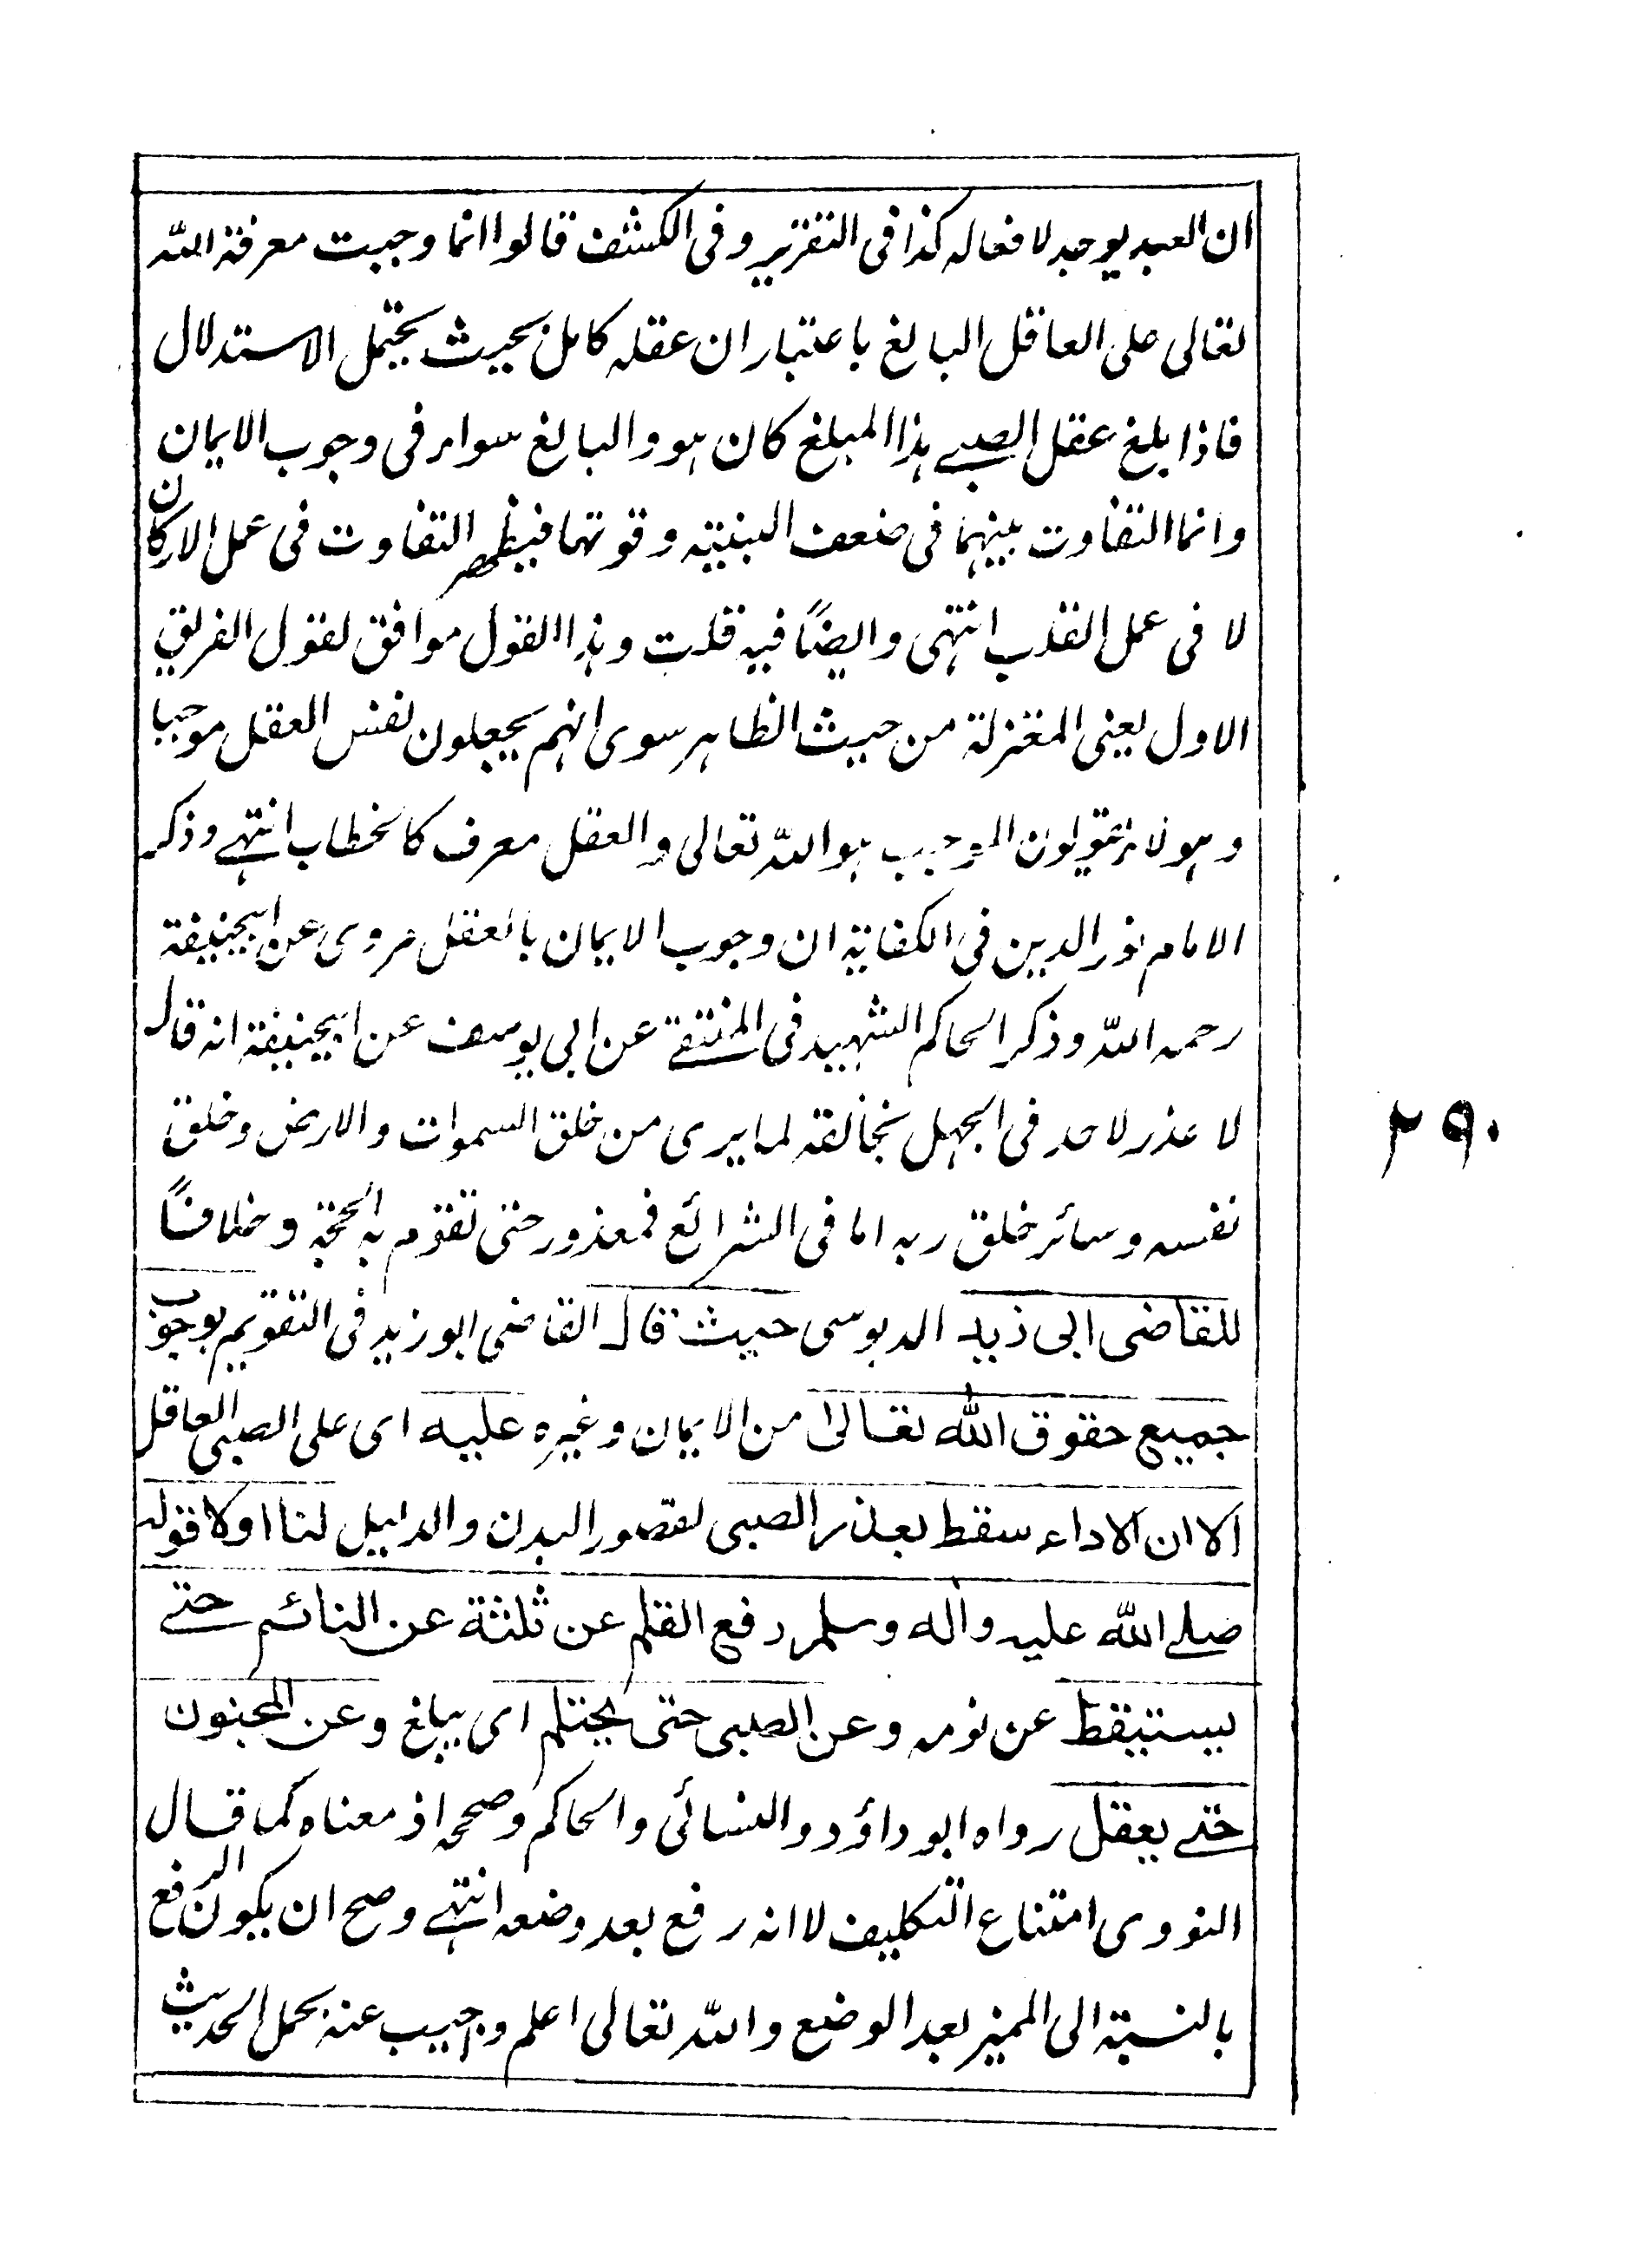 ان العبد يوجد لافعاله كذا فى التقرير وفى الكشف قالوا انما وجبت معرفة الله
تعالى على العاقل البالغ باعتبار ان عقله كامل بحيث يحتمل الاستدلال
فاذا بلغ عقل الصبے هذا المبلغ كان هو والبالغ سواء فى وجوب الايمان
وانما التفاوت بينهما فى ضعف البنية وقوتها فيظهر التفاوت فى عمل الاركان
لا فى عمل القلب انتهى وايضًا فيه قلت وهذا القول موافق لقول الفريق
الاول يعنى المعتزلة من حيث الظاهر سوى انهم يجعلون نفس العقل موجبا
وهولاء يقولون الموجب هو الله تعالى والعقل معرف كالخطاب انتهے وذكر
الامام نور الدين فى الكفاية ان وجوب الايمان بالعقل مروى عن ابيحنيفة
رحمه الله وذكر الحاكم الشهيد فى المنتقے عن ابى يوسف عن ابيحنيفة انه قال
لا عذر لاحد فى الجهل بخالقه لما يرى من خلق السموات والارض وخلق
نفسه وسائر خلق ربه اما فى الشرائع فمعذور حتى تقوم به الحجة وخلافًا
للقاضى ابى زيد الدبوسى حيث قال القاضى ابو زيد فى التقويم بوجوب
جميع حقوق الله تعالىٰ من الايمان وغيره عليه اى على الصبى العاقل
الا ان الاداء سقط بعذر الصبى لقصور البدن والدليل لنا اولا قوله
صلے الله عليه واٰله وسلم رفع القلم عن ثلثة عن النائم حتے
يستيقظ عن نومه وعن الصبى حتى يحتلم اى يبلغ وعن المجنون
حتے يعقل رواه ابو داؤد والنسائى والحاكم وصححه اذ معناه كما قال
النووى امتناع التكليف لا انه رفع بعد وضعه انتهے وصح ان يكون الرفع
بالنسبة الى المميز بعد الوضع والله تعالى اعلم واجيب عنه بحمل الحديث
٢٩٠